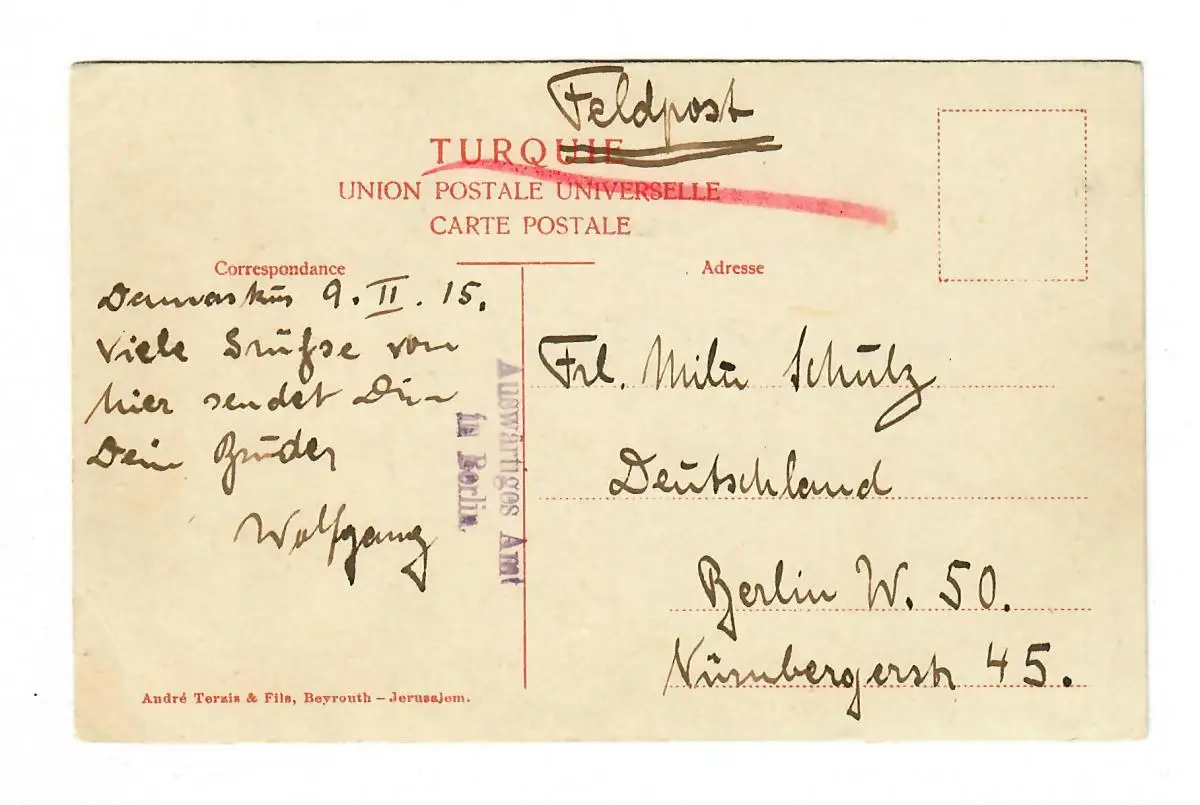 Feldpost
TURQUIE
UNION POSTALE UNIVERSELLE
CARTE POSTALE
Correspondance
Damaskus 9. II. 15.
Viele Grüsse von
hier sendet Dir
Dein Bruder
Wolfgang
Auswärtiges Amt
in Berlin.
Adresse
Frl. Schulz
Deutschland
Berlin W. 50.
Nürnbergerstr 45.
André Terzis & Fils, Beyrouth – Jerusalem.